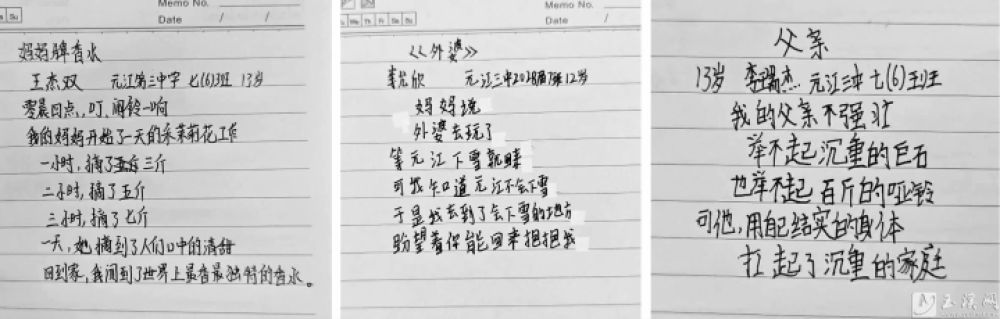 Memo No.
Date / /
Su
妈妈牌香水
王杰双 元江第三中学 七(6)班 13岁
零晨四点，叮，闹铃一响
我的妈妈开始了一天的采茉莉花工作
一小时，摘了三斤
二小时，摘了五斤
三小时，摘了七斤
一天，她摘到了人们口中的清甜
回到家，我闻到了世界上最香最独特的香水。
Memo No.
Mo Tu We Th Fr Sa Su
Date / /
《外婆》
李尤欣 元江三中2028届7班12岁
妈妈说
外婆去玩了
等元江下雪就
可我知道元江不会下雪
于是我去到了会下雪的地方
盼望着你能回来抱抱我
父亲
13岁 李瑞杰 元江三中 七(6)班
我的父亲不强壮
举不起沉重的巨石
也举不起百斤的哑铃
可他，用自己结实的身体
扛起了沉重的家庭
玉溪网